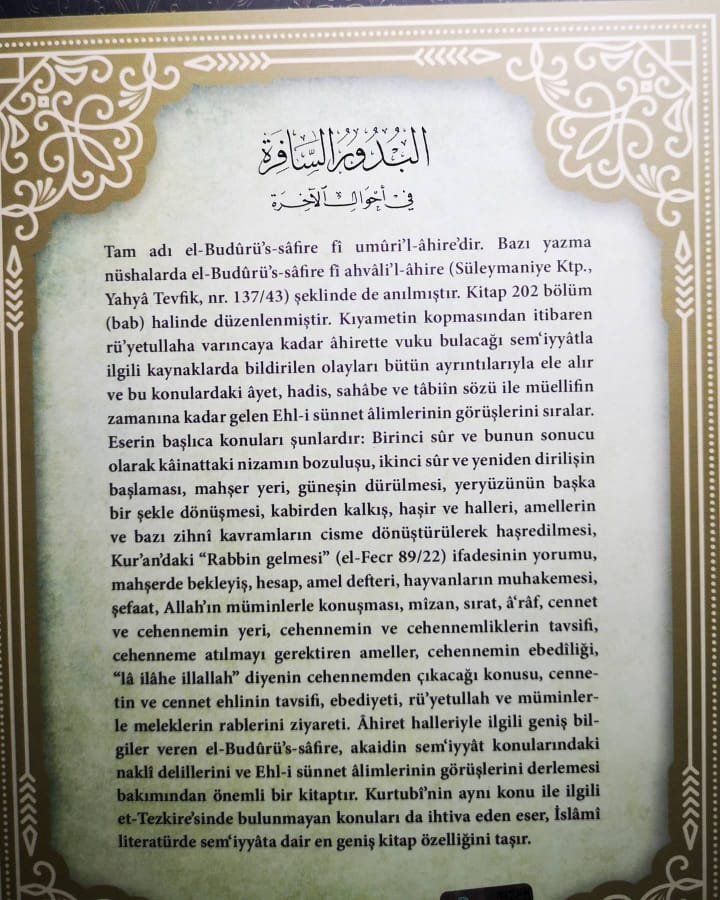 البُدُورُ السَّافِرَة
في أحوال الآخِرَة
Tam adı el-Budûrü’s-sâfire fî umûri’l-âhire’dir. Bazı yazma
nüshalarda el-Budûrü’s-sâfire fî ahvâli’l-âhire (Süleymaniye Ktp.,
Yahyâ Tevfik, nr. 137/43) şeklinde de anılmıştır. Kitap 202 bölüm
(bab) halinde düzenlenmiştir. Kıyametin kopmasından itibaren
rü’yetullaha varıncaya kadar âhirette vuku bulacağı sem‘iyyâtla
ilgili kaynaklarda bildirilen olayları bütün ayrıntılarıyla ele alır
ve bu konulardaki âyet, hadis, sahâbe ve tâbiîn sözü ile müellifin
zamanına kadar gelen Ehl-i sünnet âlimlerinin görüşlerini sıralar.
Eserin başlıca konuları şunlardır: Birinci sûr ve bunun sonucu
olarak kâinattaki nizamın bozuluşu, ikinci sûr ve yeniden dirilişin
başlaması, mahşer yeri, güneşin dürülmesi, yeryüzünün başka
bir şekle dönüşmesi, kabirden kalkış, haşir ve halleri, amellerin
ve bazı zihnî kavramların cisme dönüştürülerek haşredilmesi,
Kur’an’daki “Rabbin gelmesi” (el-Fecr 89/22) ifadesinin yorumu,
mahşerde bekleyiş, hesap, amel defteri, hayvanların muhakemesi,
şefaat, Allah’ın müminlerle konuşması, mîzan, sırat, â‘râf, cennet
ve cehennemin yeri, cehennemin ve cehennemliklerin tavsifi,
cehenneme atılmayı gerektiren ameller, cehennemin ebedîliği,
“lâ ilâhe illallah” diyenin cehennemden çıkacağı konusu, cenne-
tin ve cennet ehlinin tavsifi, ebediyeti, rü’yetullah ve müminler-
le meleklerin rablerini ziyareti. Âhiret halleriyle ilgili geniş bil-
giler veren el-Budûrü’s-sâfire, akaidin sem‘iyyât konularındaki
naklî delillerini ve Ehl-i sünnet âlimlerinin görüşlerini derlemesi
bakımından önemli bir kitaptır. Kurtubî’nin aynı konu ile ilgili
et-Tezkire’sinde bulunmayan konuları da ihtiva eden eser, İslâmî
literatürde sem‘iyyâta dair en geniş kitap özelliğini taşır.